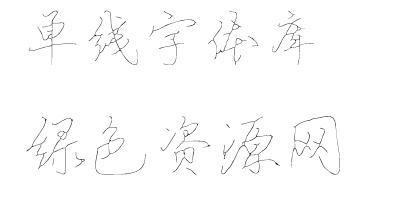 单线字体库
绿色资源网